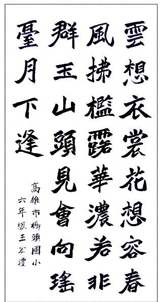 雲想衣裳花想容春
風拂檻露華濃若非
群玉山頭見會向瑤
臺月下逢
高雄市橋頭國小
六年